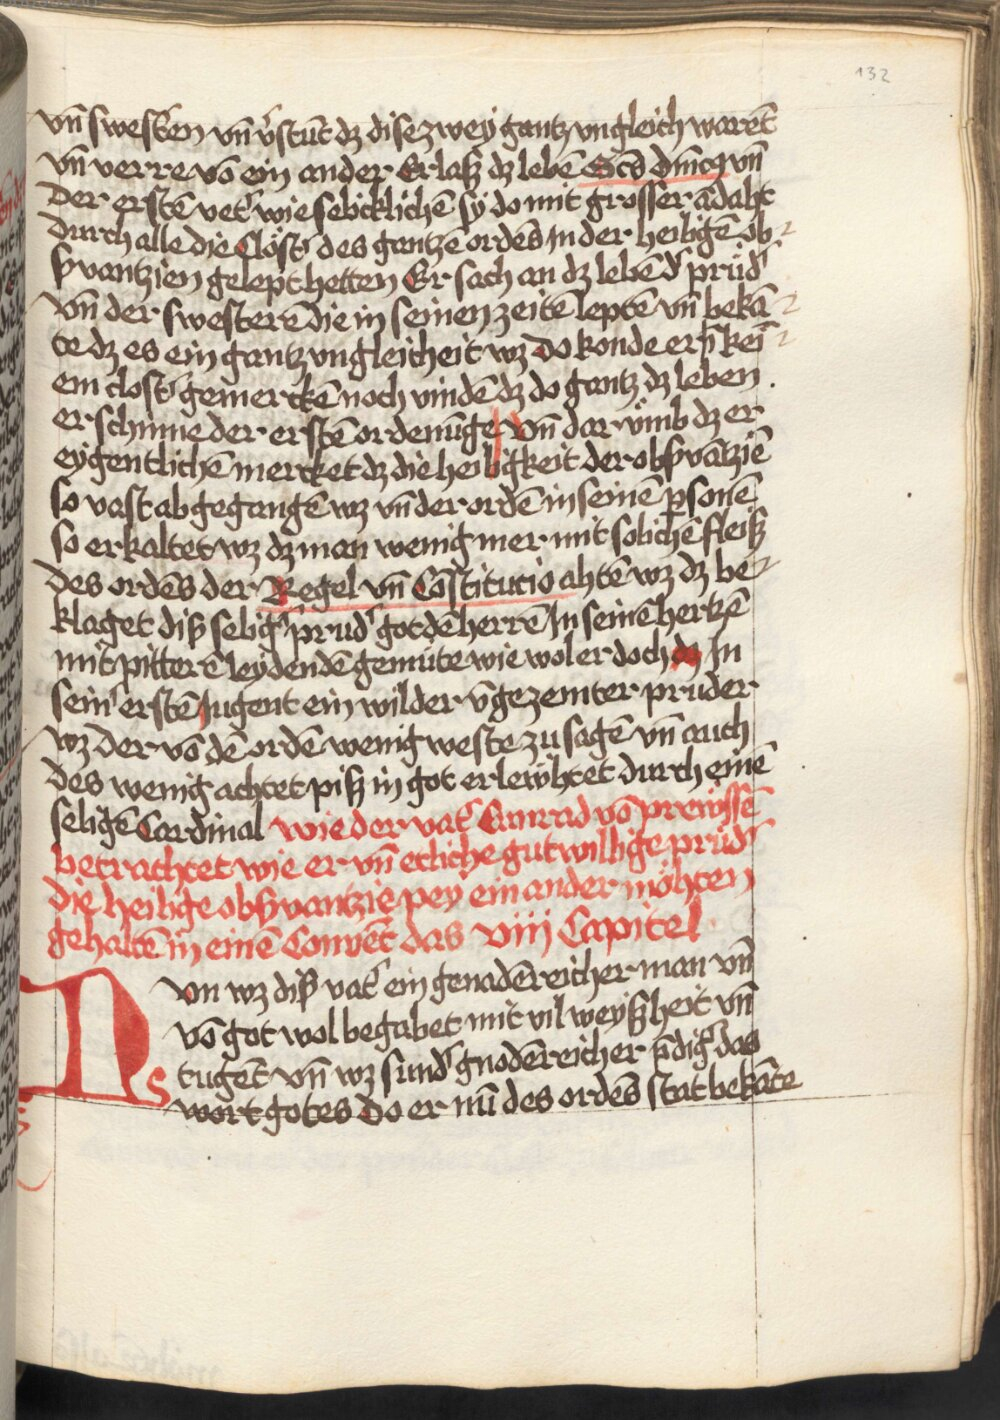 132
vn̄ swestʼen vn̄ vʼstūt dz dise zwey gantz vngleich warēt
vn̄ verre vō ein ander Er laß dz lebē Scs dn̄icq vn̄
Der erstē vetʼ wie selicklichē sy do mit grosser ādaht
durch alle die Clöstʼ des gantzē ordēs In der heiligē ob⸗
sʼvantzien gelept hetten Er sach an dz lebē dʼ prüdʼ
vn̄ der swesterē die in seinen zeitē leptē vn̄ bekā⸗
te dz es ein gantz vngleicheit wz do konde er kei̅⸗
ein clostʼ gemerckē noch vindē dz do gantz dz leben
erschinne der erstē ordenūge Vn̄ dar vmb dz er
eygentlichē mercket dz die heiligkeit der obsʼvātziē
so vast ab gegangē wz vn̄ der ordē in seinē psonē
so erkaltet wz dz man wenig mer mit solichē fleiß
des ordēs der Regel vn̄ Cōstitucio ahtē wz dz be⸗
klaget dißʼ seligʼ prudʼ got dē herrē In seinē hertzē
mit pitterē leydendē gemüte wie wol er doch dz In
seinʼ erstē Jugent ein wilder v̄gezemter prüder
wz der vō dē ordē wenig weste zu sagē vn̄ auch
des wenig achtet piß in got erlewhtet durch einē
seligē Cardinal wie der vatʼ Cunrad vō prewssē
betrachtet wie er vn̄ etliche gutwillige prüdʼ
die heilige obsʼvantzie pey ein ander möhten
gehaltē in einē Convēt das viij Capitel
Nvn wz dißʼ vatʼ ein genadēreicher man vn̄
vō got wol begabet mit vil weyßheit vn̄
tugēt vn̄ wz sundʼ gnodēreicher pdigʼ das
wort gotes Do er nū des ordēs stat bekāte